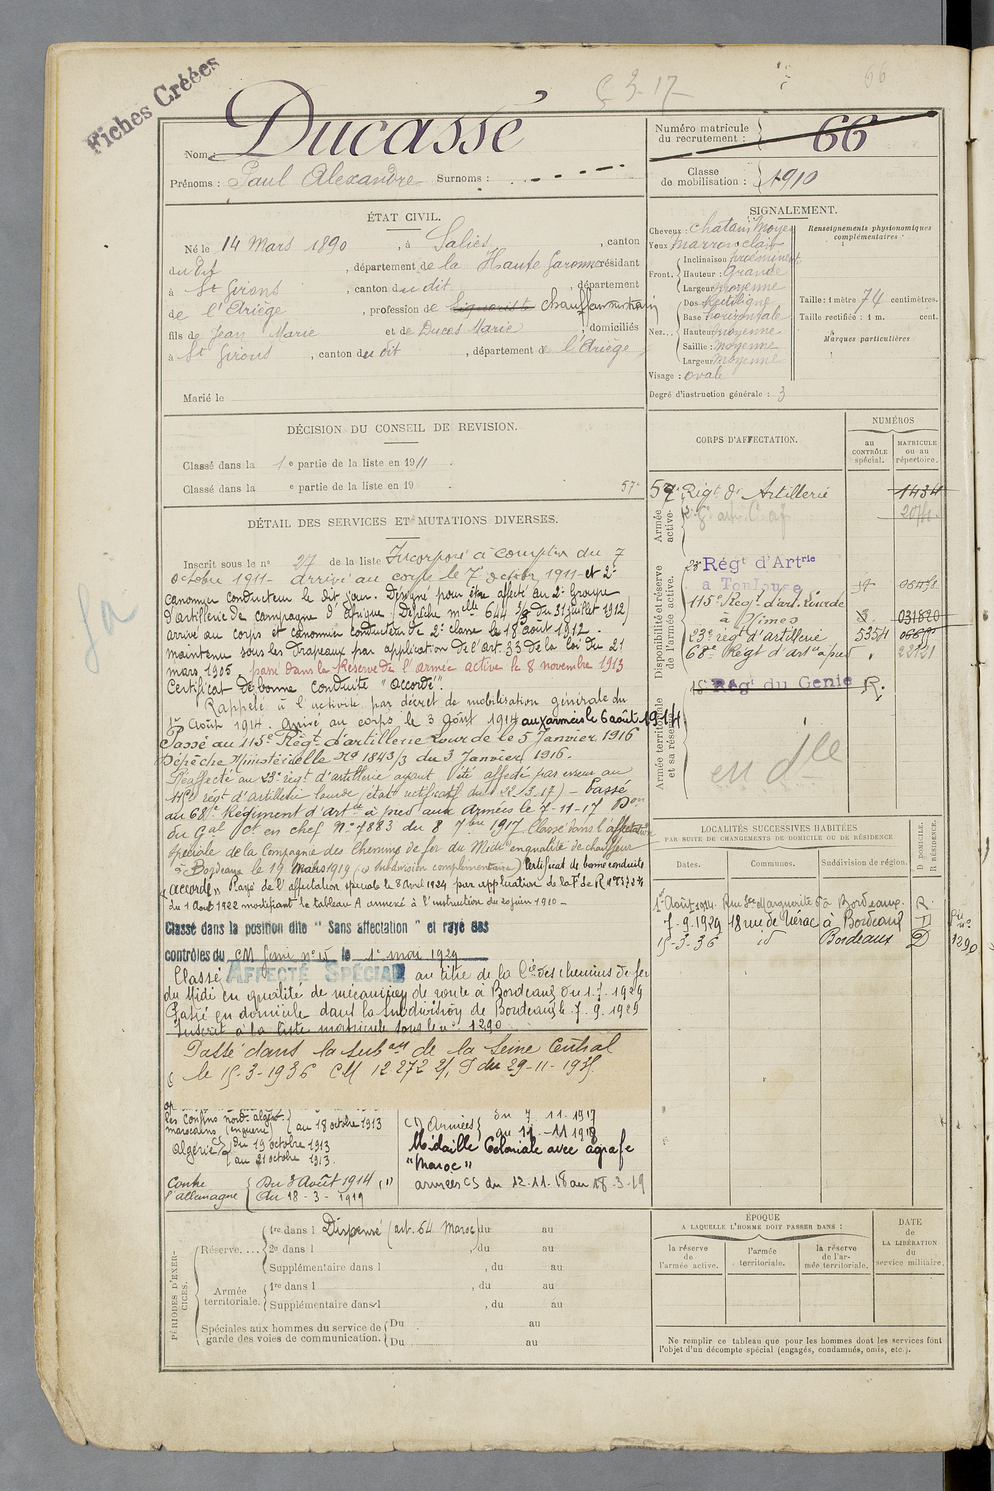 Fiches Créées
66
Nom : Ducasse
Prénoms : Paul Alexandre Surnoms :
Numéro matricule du recrutement : 66
Classe de mobilisation : 1910
ÉTAT CIVIL.
Né le 14 Mars 1890, à Salies, canton
du dit, département de la Haute Garonne résidant
à St Girons, canton du dit, département
de l'Ariège, profession de chauffeur
fils de Jean Marie et de Ducos Marie, domiciliés
à St Girons, canton du dit, département de l'Ariège
Marié le
SIGNALEMENT.
Cheveux : chatain moyen
Yeux marron clair
Front. Inclinaison proéminent
Hauteur : Grande
Largeur moyenne
Nez... Dos Rectiligne
Base : horizontale
Hauteur moyenne
Saillie : moyenne
Largeur moyenne
Visage : ovale
Degré d'instruction générale : 3
Renseignements physionomiques complémentaires :
Taille : 1 mètre 74 centimètres.
Taille rectifiée : 1 m. cent.
Marques particulières :
DÉCISION DU CONSEIL DE REVISION.
Classé dans la 1e partie de la liste en 1911.
Classé dans la e partie de la liste en 19
57
CORPS D'AFFECTATION.
NUMÉROS
au CONTRÔLE spécial.
MATRICULE ou au répertoire.
Armée active.
57e Régt d'Artillerie 1434
Disponibilité et réserve de l'armée active.
23 Régt d'Artrie
a Toulouse
115e Régt d'art. Lourde
à Nimes
23e rég d'artillerie 5354
68e Régt d'Arte à pied 22121
Armée territoriale et sa réserve
18 Régt du Génie R.
en dle
DÉTAIL DES SERVICES ET MUTATIONS DIVERSES.
Inscrit sous le no 27 de la liste Incorporé à compter du 7
octobre 1911 - arrivé au corps le 7 octobre 1911 - et 2e
canonnier conducteur le dit jour. Désigné pour être affecté au 2e Groupe
d'artillerie de campagne d'Afrique, Dépêche mlle 644 du 31 juillet 1912
arrivé au corps et canonnier conducteur de 2e classe le 18 août 1912
maintenu sous les drapeaux par application de l'art. 33 de la loi du 21
mars 1905 passé dans la Réserve de l'armée active le 8 novembre 1913
Certificat de bonne conduite "accordé".
Rappelé à l'activité par décret de mobilisation générale du
1er Août 1914. Arrivé au corps le 3 Août 1914 aux armées le 6 août 1914
Passé au 115e Régt d'artillerie Lourde le 5 Janvier 1916
Dépêche Ministérielle No 1843/3 du 3 Janvier 1916.
Réaffecté au 23e régt d'artillerie ayant été affecté par erreur au
115e régt d'artillerie lourde (état rectificatif du 22.3.17) - Passé
au 68e Régiment d'Arte à pied aux Armées le 7-11-17 Don
du Gal Ct en chef No 7883 du 8 7bre 1917 Classé dans l'affectation
spéciale de la Compagnie des Chemins de fer du Midi en qualité de chauffeur
à Bordeaux le 19 Mars 1919 (subdivision complémentaire) Certificat de bonne conduite
"accordé" Rayé de l'affectation spéciale le 8 Avril 1924 par application de la
du 1 Août 1922 modifiant le tableau A annexé à l'instruction du 20 juin 1910 -
Classé dans la position dite "Sans affectation" et rayé des
contrôles du CM génie no 15 le 1er mai 1929
Classé AFFECTÉ SPÉCIAL au titre de la Cie des chemins de fer
du Midi en qualité de mécanicien de route à Bordeaux du 1.7.1929
Passé en domicile dans la subdivision de Bordeaux le 7.9.1929
Inscrit à la liste matricule sous le no 1290
Passé dans la subon de la Seine Central
le 15-3-1936 CM 12272 du 29-11-1935
les Confins nord algéro-marocains (en guerre) au 18 octobre 1913
Algérie du 19 octobre 1913
au 21 octobre 1913.
Contre l'allemagne Du 3 Août 1914
au 18-3-1919
(1) Armées du 7 11.1917
au 11-11 1918
Médaille Coloniale avec agrafe
"Maroc"
armées CS du 12.11.18 au 18-3-19
LOCALITÉS SUCCESSIVES HABITÉES
PAR SUITE DE CHANGEMENTS DE DOMICILE OU DE RÉSIDENCE
Dates. Communes. Subdivision de région. D DOMICILE. R RÉSIDENCE.
1er Août 1924. Rue Ste Marguerite 6 à Bordeaux. R
7-9-1929 18 rue de Nérac à Bordeaux D
15-3-36 id Bordeaux D
1290
PÉRIODES D'EXERCICES.
Réserve.... 1re dans l Dispensé (art. 64 Maroc) du au
2e dans l , du au
Supplémentaire dans l , du au
Armée territoriale. 1re dans l , du au
Supplémentaire dans l , du au
Spéciales aux hommes du service de garde des voies de communication. Du au
Du au
ÉPOQUE
A LAQUELLE L'HOMME DOIT PASSER DANS :
la réserve de l'armée active.
l'armée territoriale.
la réserve de l'armée territoriale.
DATE de LA LIBÉRATION du service militaire.
Ne remplir ce tableau que pour les hommes dont les services font
l'objet d'un décompte spécial (engagés, condamnés, omis, etc.).